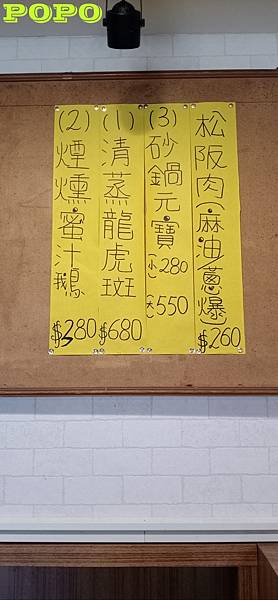 POPO
松阪肉(麻油蔥爆 $260
(3)砂鍋元寶 (小)280 (大)550
(1)清蒸龍虎斑 $680
(2)煙燻蜜汁鵝 $380